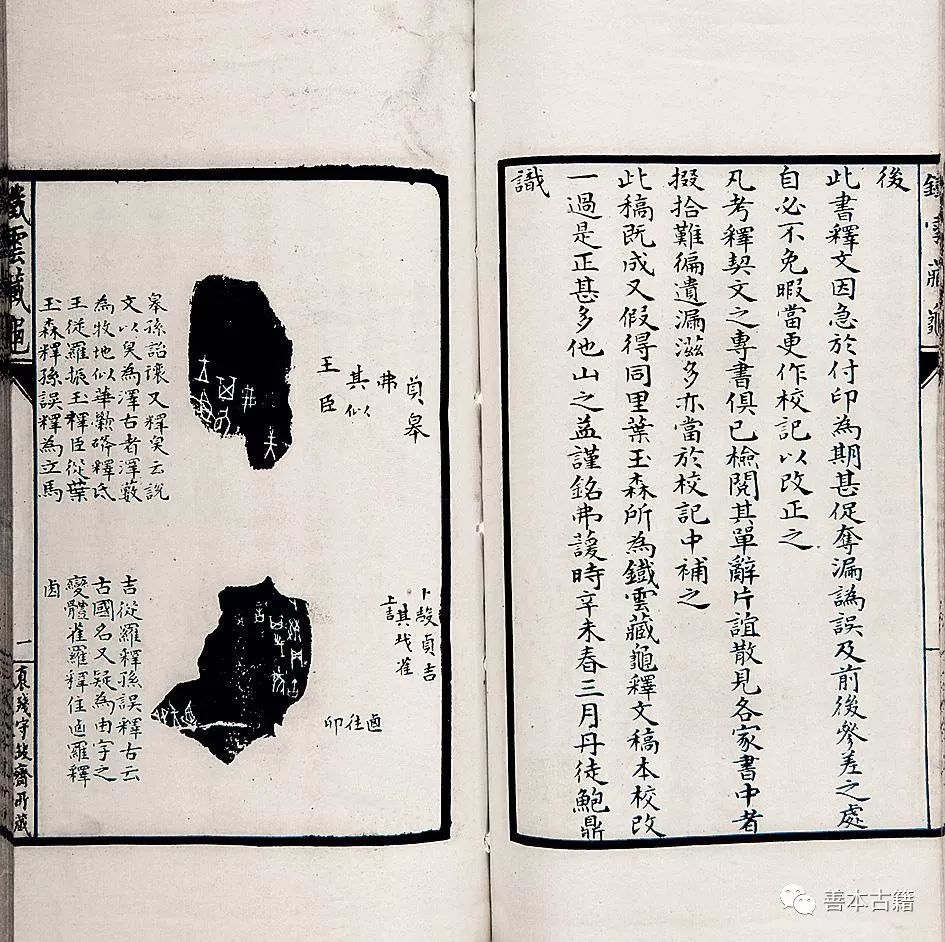 鐵雲藏龜
後
此書釋文因急於付印為期甚促奪漏譌誤及前後參差之處
自必不免暇當更作校記以改正之
凡考釋契文之專書俱已檢閱其單辭片誼散見各家書中者
掇拾難徧遺漏滋多亦當於校記中補之
此稿既成又假得同里葉玉森所為鐵雲藏龜釋文稿本校改
一過是正甚多他山之益謹銘弗諼時辛未春三月丹徒鮑鼎
識
貞皋
弗
其㠯
王
臣
皋孫詒讓又釋㚖云說
文以㚖為澤古者澤藪
為牧地㠯華歎㗬釋氏
王從羅振玉釋臣從葉
玉森釋孫誤釋為立馬
卜㱿貞吉
其㦰雀
上吉
卣往
卯
吉從羅釋孫誤釋古云
古國名又疑為由字之
變體雀羅釋往卣羅釋
卣
鐵雲藏龜
一
袌殘守缺齋所藏
善本古籍